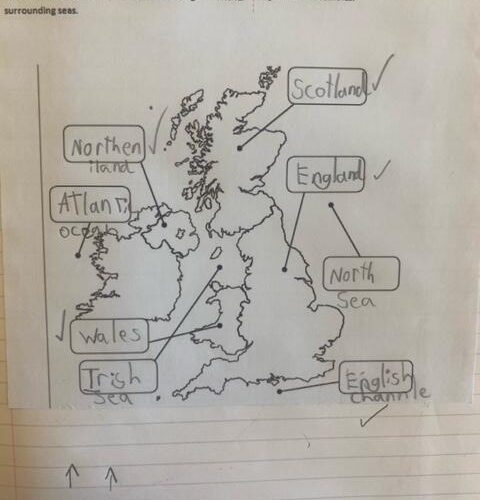 surrounding seas.
Scotland
Northen
iland
England
Atlantic
ocean
North
Sea
Wales
Irish
Sea
English
channle